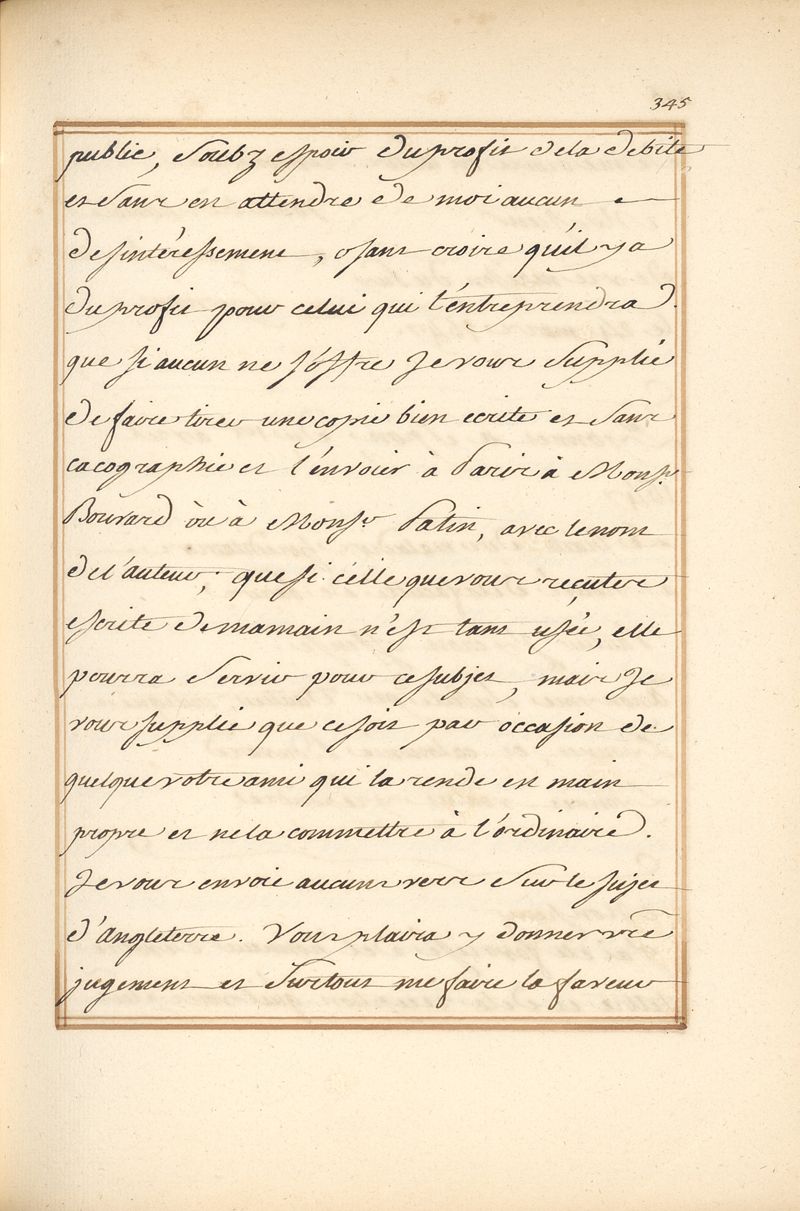 345
public, soubz espoir du profit de la debite
et sans en attendre de moi aucun
desintéressement, osant croire qu'il y a
du profit pour celui qui l'entreprendra.
que si aucun ne s'offre Je vous supplie
de faire tirer une copie bien ecrite et sans
cacographie et l'envoier à Paris à Monsr.
Bouvard òu à Monsr. Patin, avec le nom
de l'auteur; que si celle que vous reçutes
escrite de ma main n'est tant usée, elle
pourra servir pour ce subjet, mais Je
vous supplie que ce soit par occasion de
quelque votre ami qui la rende en main
propre et ne la commettre à l'ordinaire.
Je vous envoie aucuns vers sur le sujet
d'angleterre. Vous plaira y donner vre
jugement et surtout me faire la faveur